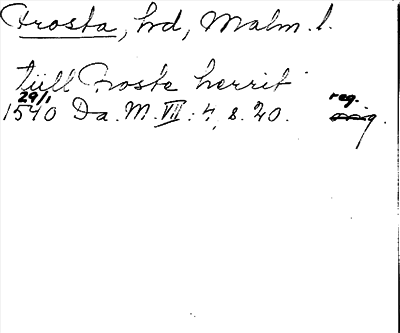 Frosta, hd, Malm. l.
tüll Froste herrit
29/1 reg.
1540 Da. M. VII: 4, s. 20. orig.